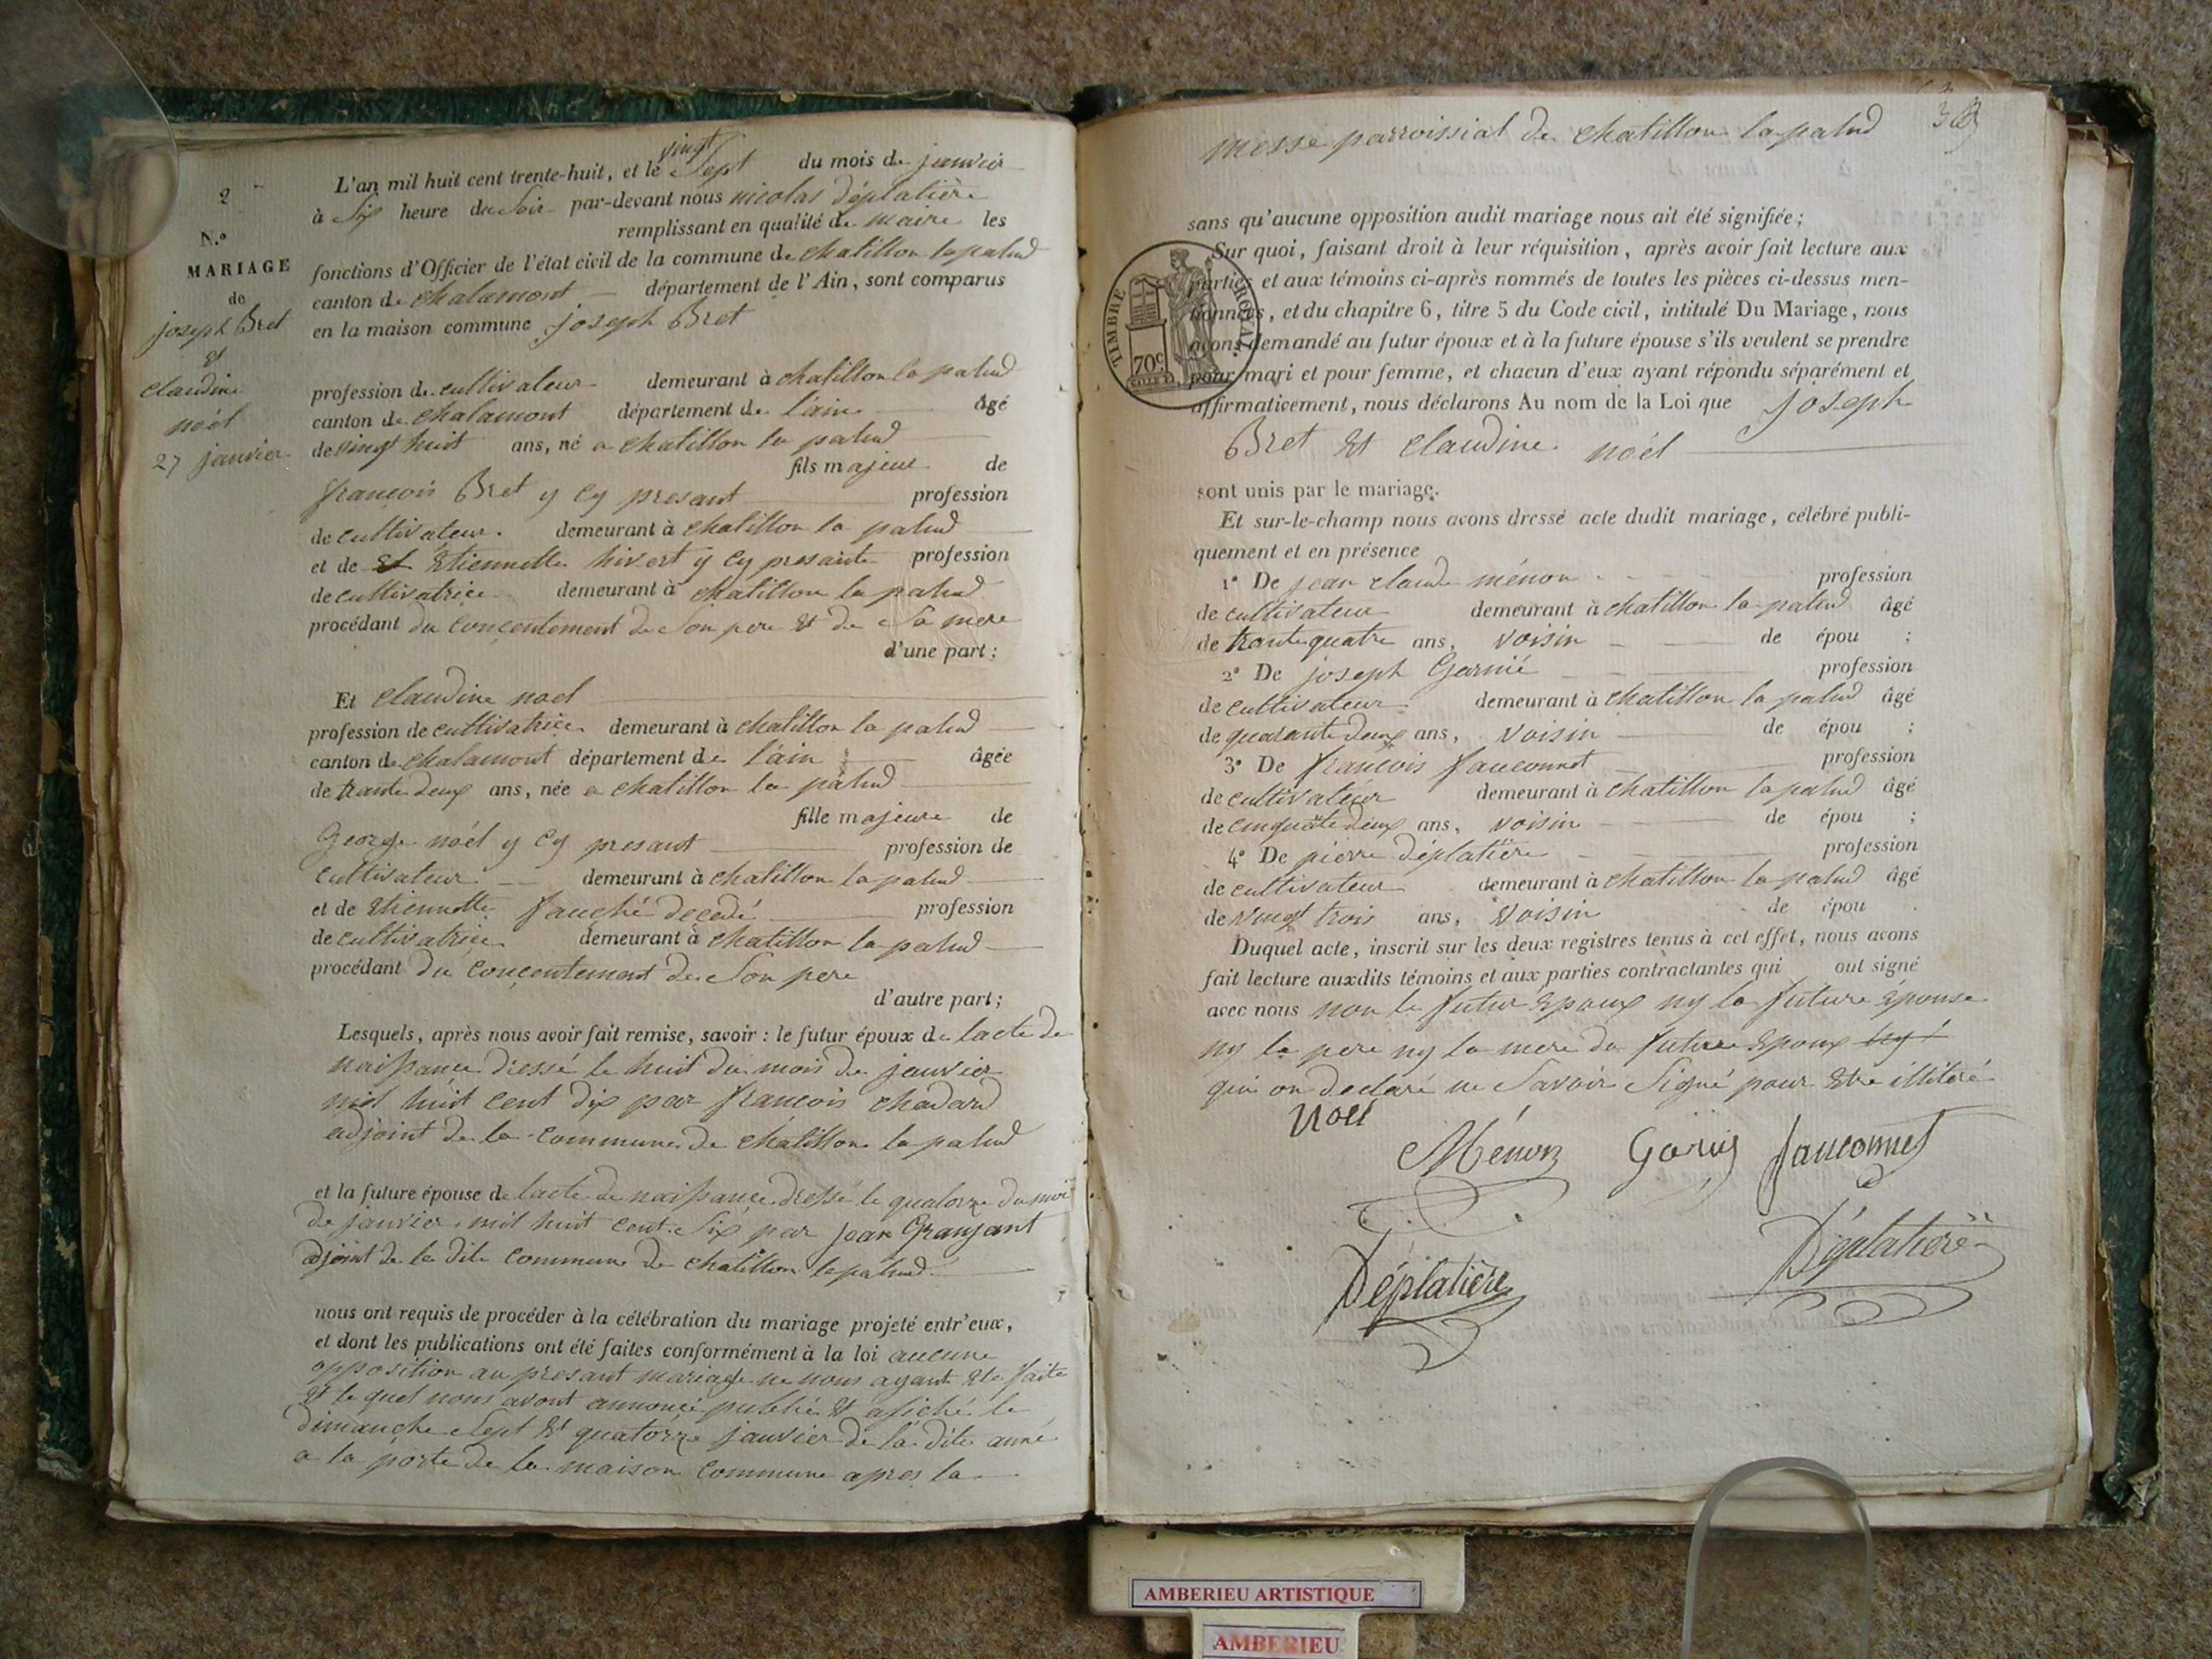 2
N.º
MARIAGE
de
joseph Bret
Et
Claudine
noël
27 janvier
vingt
L'an mil huit cent trente-huit, et le Sept du mois de janvier
à Six heure du Soir par-devant nous nicolas Déplatière
remplissant en qualité de maire les
fonctions d'Officier de l'état civil de la commune de chatillon lapalud
canton de chalamont département de l'Ain, sont comparus
en la maison commune joseph Bret
profession de cultivateur demeurant à chatillon la palud
canton de chalamont département de l'ain âgé
de vingt huit ans, né a chatillon la palud
fils majeur de
françois Bret y cy presant profession
de cultivateur demeurant à chatillon la palud
et de Et Etiennette hivert y cy presante profession
de cultivatrice demeurant à chatillon la palud
procédant du conçentement de Son pere Et de Sa mere
d'une part ;
Et Claudine noel
profession de cultivatrice demeurant à chatillon la palud
canton de chalamont département de l'ain âgée
de trante deux ans, née a chatillon la palud
fille majeure de
George noël y cy presant profession de
cultivateur demeurant à chatillon la palud
et de Etiennette fauché decedé profession
de cultivatrice demeurant à chatillon la palud
procédant du conçentement de Son pere
d'autre part ;
Lesquels, après nous avoir fait remise, savoir : le futur époux de lacte de
naissance dressé le huit du mois de janvier
mil huit cent dix par françois chadard
adjoint de la commune de chatillon la palud
et la future épouse de lacte de naissance dressé le quatorze du moi
de janvier mil huit cent Six par jean Granjant
adjoint de la dite commune de chatillon lapalud
nous ont requis de procéder à la célébration du mariage projeté entr'eux,
et dont les publications ont été faites conformément à la loi aucune
opposition au presant mariage ne nous ayant Ete faite
Et le quel nous avont annoncé publié Et afiché le
dimanche Sept Et quatorze janvier de la dite anné
a la porte de la maison commune apres la
messe parroissial de chatillon la palud
sans qu'aucune opposition audit mariage nous ait été signifiée ;
Sur quoi, faisant droit à leur réquisition, après avoir fait lecture aux
parties et aux témoins ci-après nommés de toutes les pièces ci-dessus men-
tionnées, et du chapitre 6, titre 5 du Code civil, intitulé Du Mariage, nous
avons demandé au futur époux et à la future épouse s'ils veulent se prendre
pour mari et pour femme, et chacun d'eux ayant répondu séparément et
affirmativement, nous déclarons Au nom de la Loi que joseph
TIMBRE ROYAL
70c
Bret Et Claudine noël
sont unis par le mariage.
Et sur-le-champ nous avons dressé acte dudit mariage, célébré publi-
quement et en présence
1º De jean claude ménon profession
de cultivateur demeurant à chatillon la palud âgé
de trante quatre ans, voisin de épou ;
2º De joseph Garnié profession
de cultivateur demeurant à chatillon la palud âgé
de quarante deux ans, voisin de épou ;
3º De françois fauconnet profession
de cultivateur demeurant à chatillon la palud âgé
de cinquante deux ans, voisin de épou ;
4º De pierre Déplatière profession
de cultivateur demeurant à chatillon la palud âgé
de vingt trois ans, voisin de épou
Duquel acte, inscrit sur les deux registres tenus à cet effet, nous avons
fait lecture auxdits témoins et aux parties contractantes qui ont signé
avec nous non le futur Epoux ny la future Epouse
ny le pere ny la mere du future Epoux ny
qui on declaré ne Savoir Signé pour Etre illitéré
noel
Ménon Fauconnet
Déplatière
Déplatière
AMBERIEU ARTISTIQUE
AMBERIEU